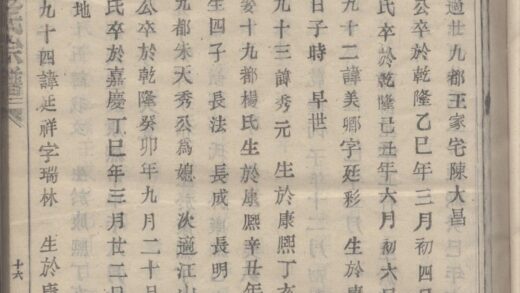 適廿九都王家宅陳大昌
公卒於乾隆乙巳年三月初四日
氏卒於乾隆己丑年六月初六日
九十二諱美卿字廷彩 生於康
日子時 早世
九十三諱秀元 生於康熙丁亥
娶十九都楊氏生於康熙辛丑年
生四子 長法 長成 長明
九都朱天秀公為媳 次適江山
公卒於乾隆癸卯年九月二十日
氏卒於嘉慶丁巳年三月廿二日
地
九十四諱廷祥字瑞林 生於康
氏宗譜
十六